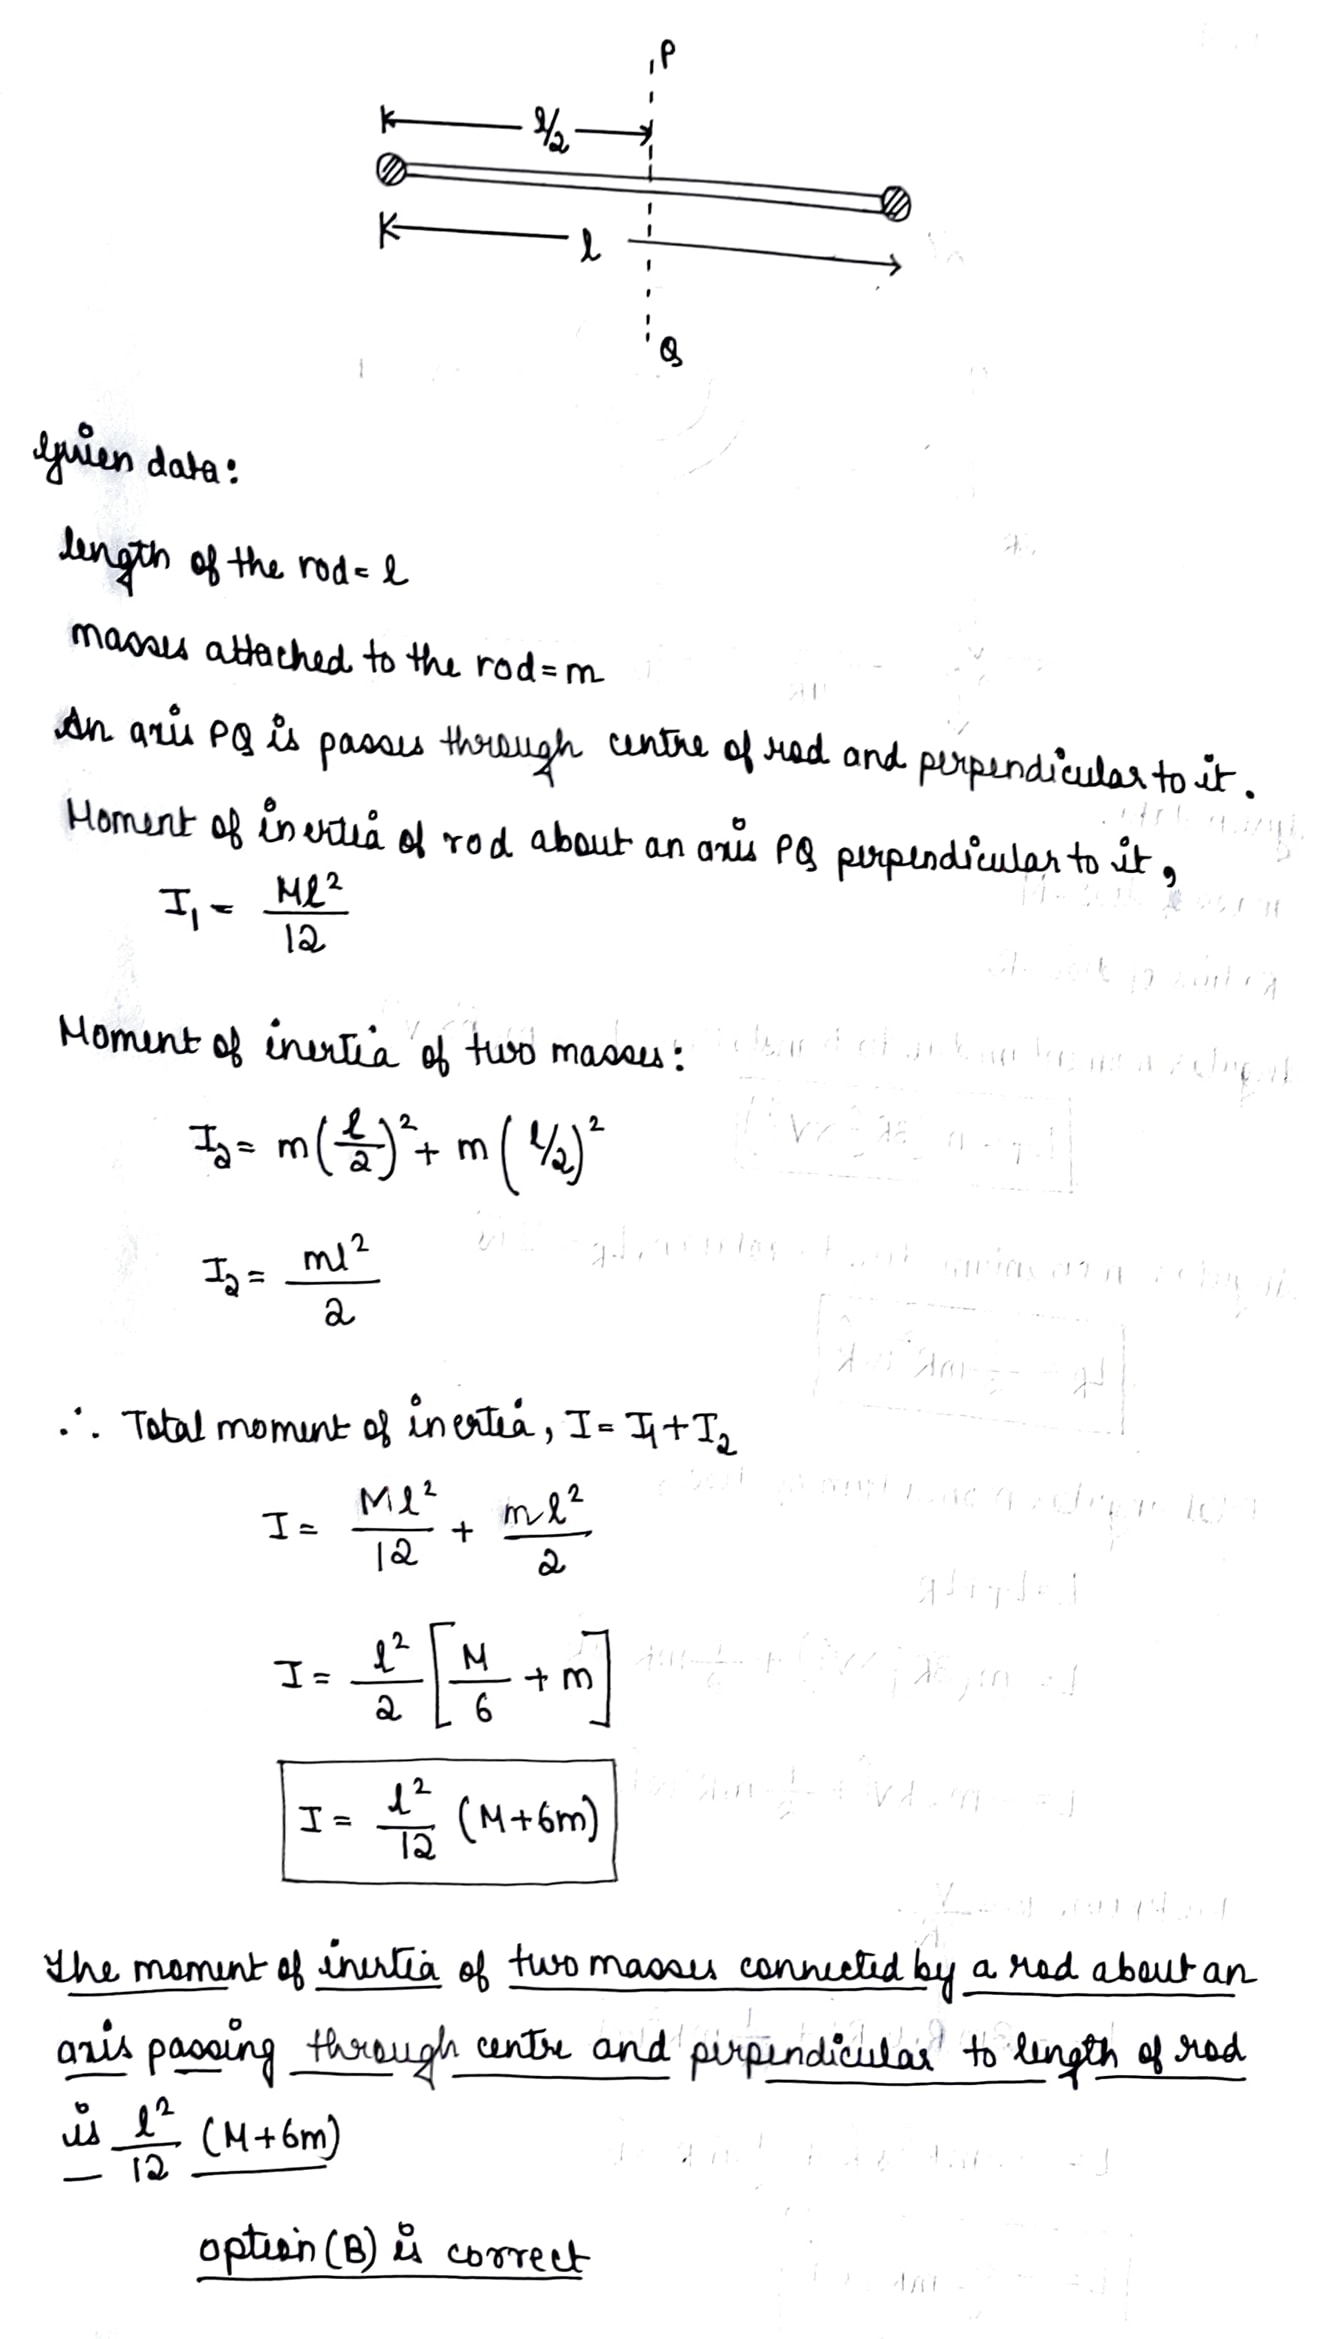 P
l/2
l
Q
Given data:
length of the rod = l
masses attached to the rod = m
An axis PQ is passes through centre of rod and perpendicular to it.
Moment of inertia of rod about an axis PQ perpendicular to it,
I₁ = Ml²/12
Moment of inertia of two masses:
I₂ = m(l/2)² + m(l/2)²
I₂ = ml²/2
∴ Total moment of inertia, I = I₁ + I₂
I = Ml²/12 + ml²/2
I = l²/2 [M/6 + m]
I = l²/12 (M+6m)
The moment of inertia of two masses connected by a rod about an
axis passing through centre and perpendicular to length of rod
is l²/12 (M+6m)
option (B) is correct